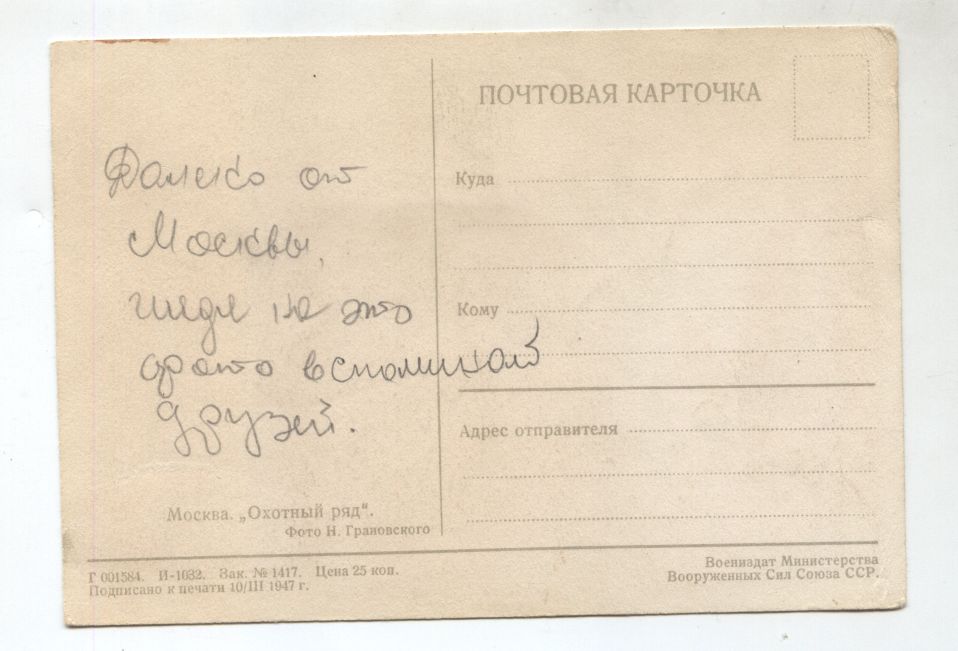 ПОЧТОВАЯ КАРТОЧКА
Далеко от
Москвы,
глядя на это
фото вспоминай
друзей.
Куда
Кому
Адрес отправителя
Москва. „Охотный ряд".
Фото Н. Грановского
Г 001584. И-1032. Зак. № 1417. Цена 25 коп.
Подписано к печати 10/III 1947 г.
Воениздат Министерства
Вооруженных Сил Союза ССР.